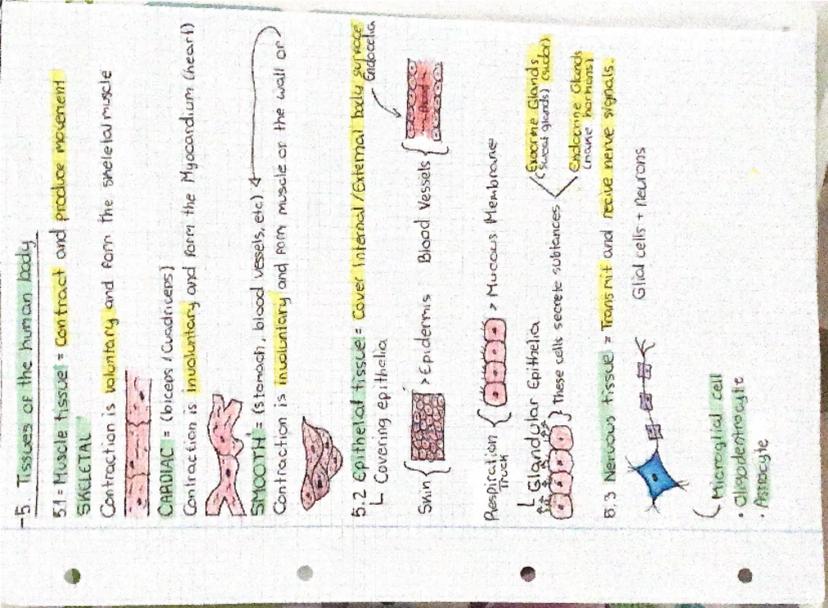 5. Tissues of the human body
5.1 = Muscle tissue = Contract and produce movement
SKELETAL
Contraction is voluntary and form the skeletal muscle
CARDIAC = (biceps / Cuadriceps)
Contraction is involuntary and form the Myocardium (heart)
SMOOTH = (stomach, blood vessels, etc)
Contraction is involuntary and form muscle or the wall or
5.2 Epithelial tissue = Cover Internal / External body surface
Covering epithelia
Endocelia
Skin { > Epidermis
Blood Vessels {
Blood
Respiration Track { > Mucous Membrane
Glandular Epithelia
} These cells secrete subtances
Exocrine Glands
(sweat glands) (sudor)
Endocrine Glands
(make hormons)
5.3 Nervous tissue = Transmit and recive nerve signals.
Glial cells + neurons
( Microglial cell
• Oligodentrocyte
• Astrocyte